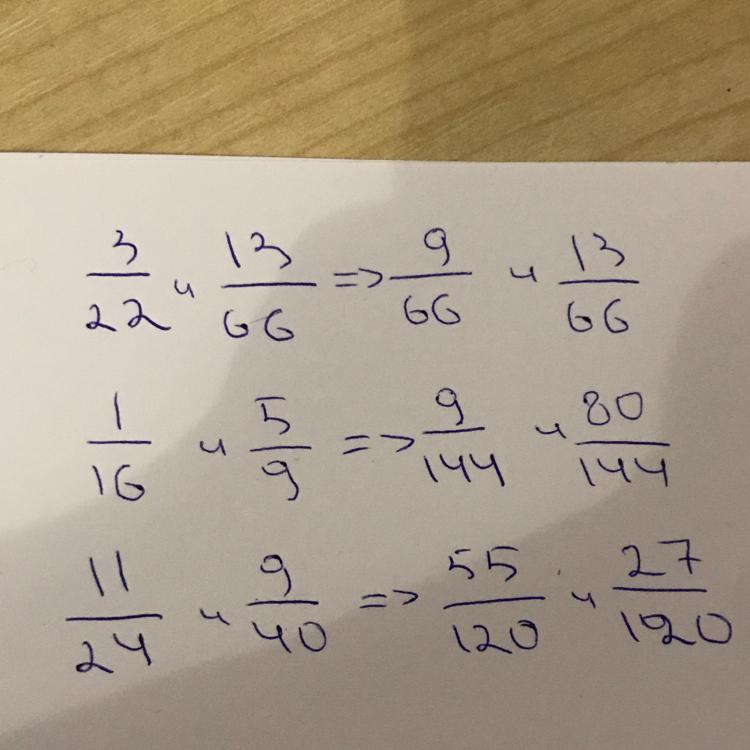 3/22 и 13/66 => 9/66 и 13/66
1/16 и 5/9 => 9/144 и 80/144
11/24 и 9/40 => 55/120 и 27/120